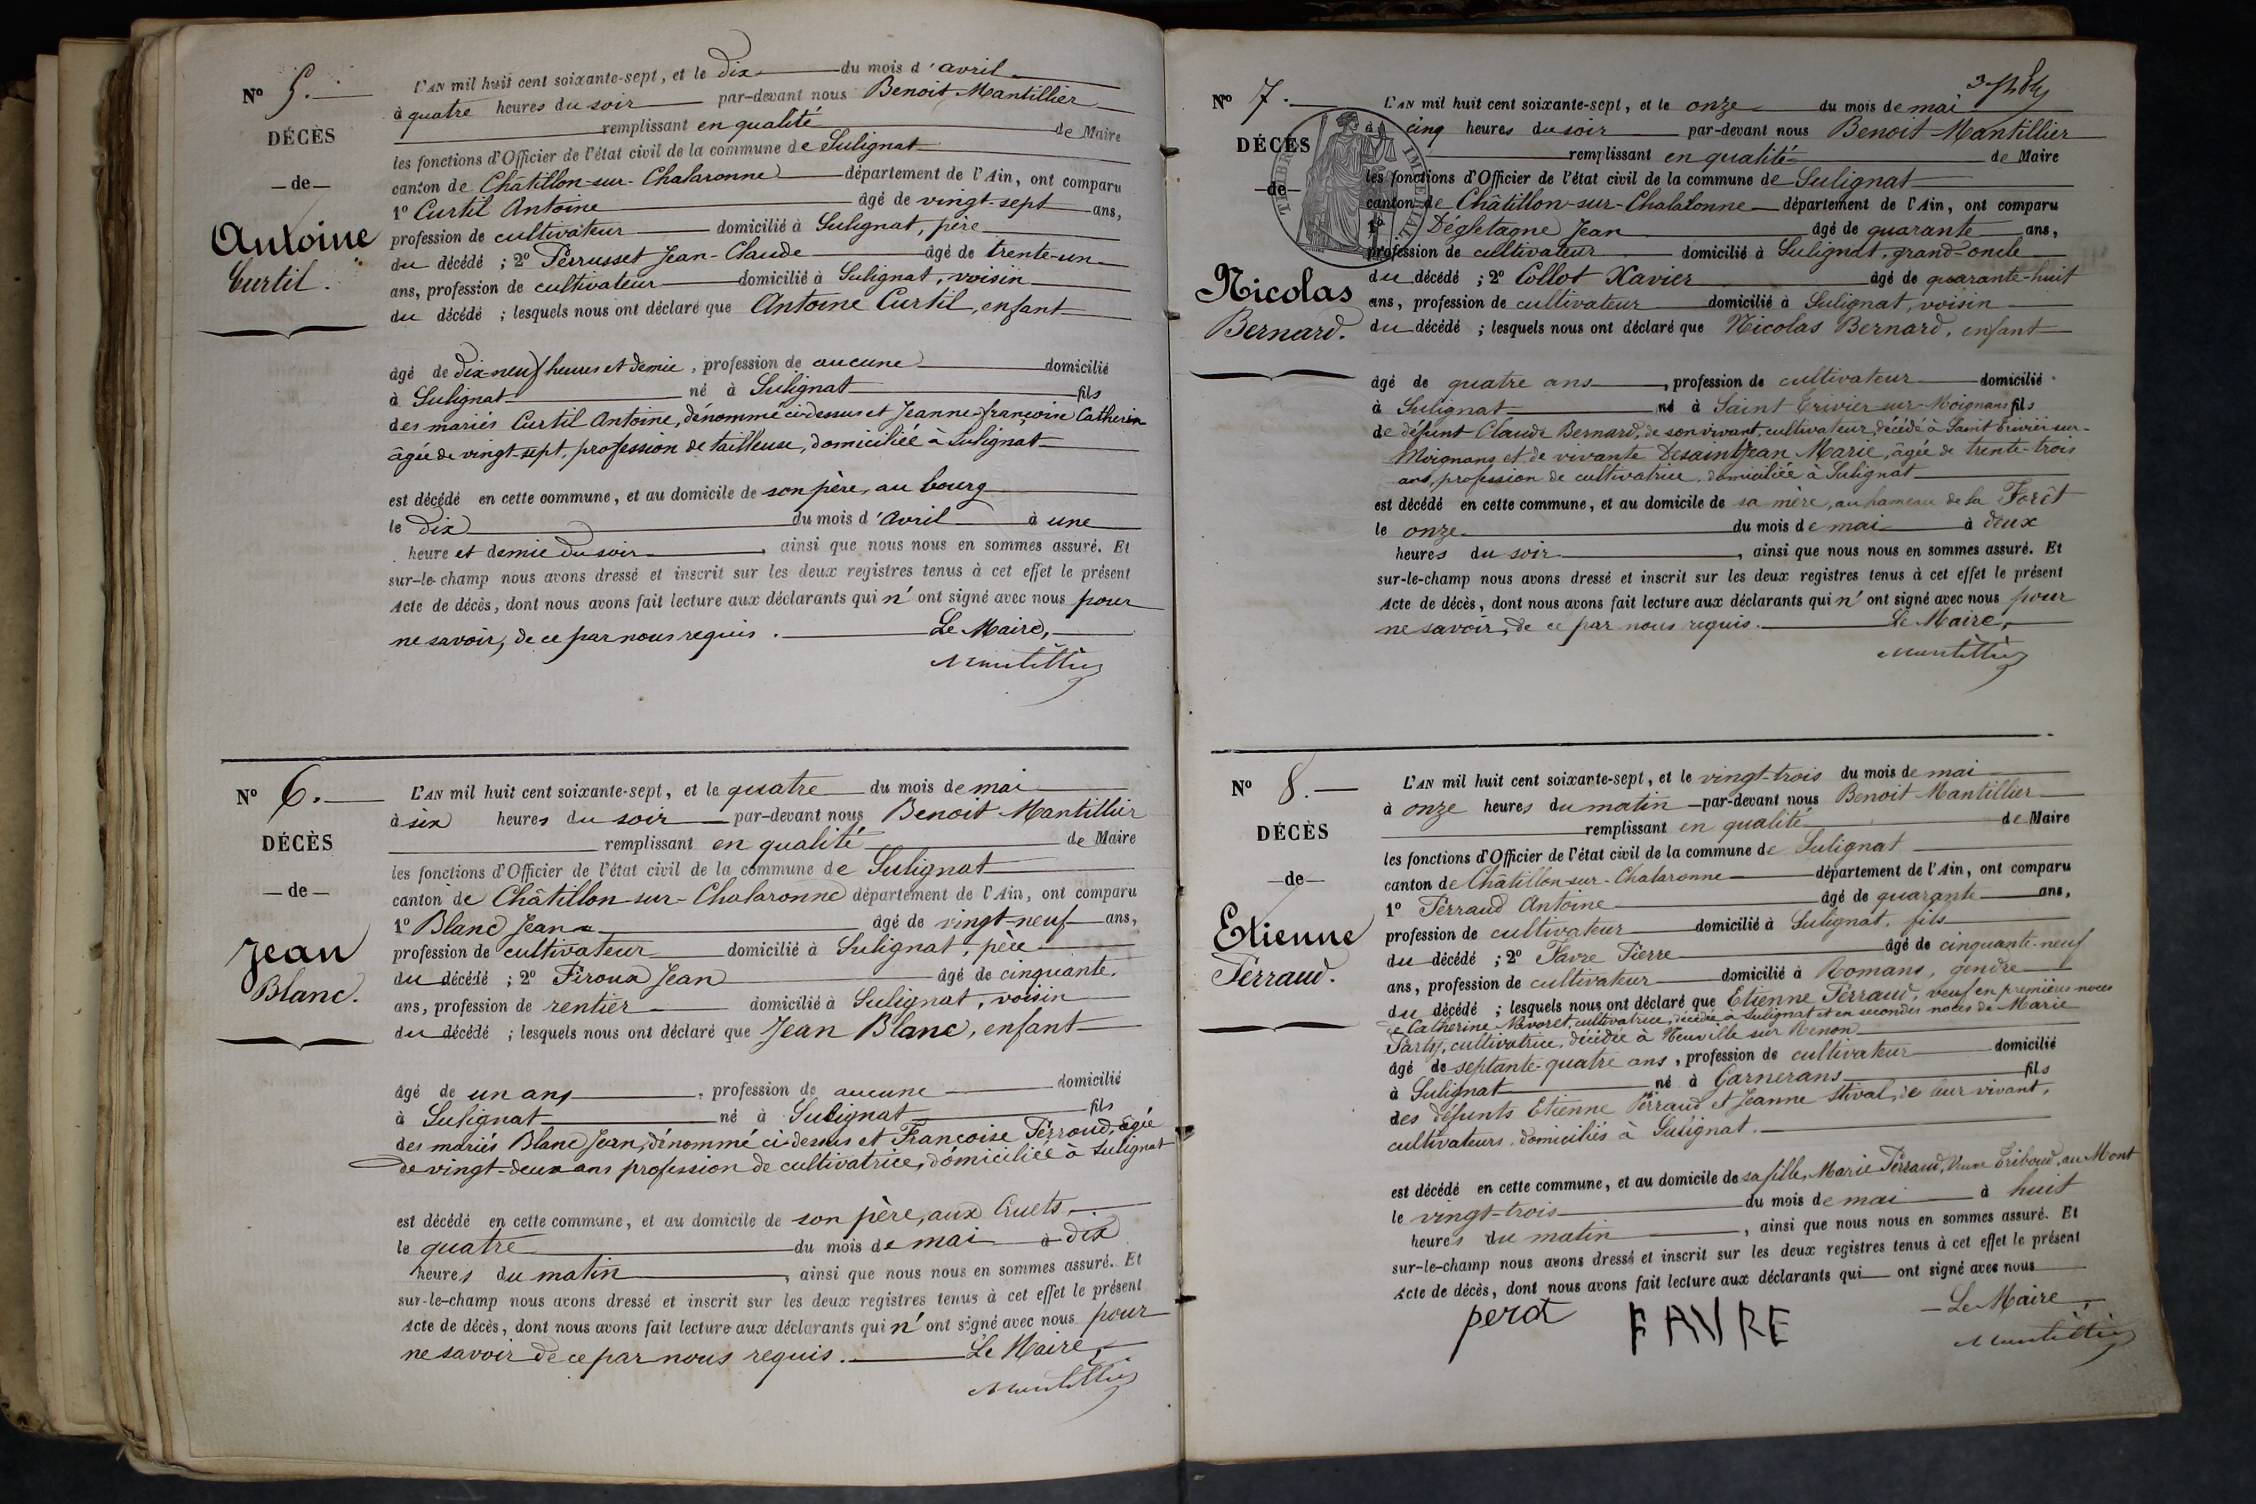 N° 5.
DÉCÈS
— de —
Antoine
Curtil.
L'AN mil huit cent soixante-sept, et le dix du mois d'avril
à quatre heures du soir par-devant nous Benoit Mantillier
remplissant en qualité de Maire
les fonctions d'Officier de l'état civil de la commune de Sulignat
canton de Châtillon-sur-Chalaronne département de l'Ain, ont comparu
1° Curtil Antoine âgé de vingt-sept ans,
profession de cultivateur domicilié à Sulignat, père
du décédé ; 2° Perrusset Jean-Claude âgé de trente-un
ans, profession de cultivateur domicilié à Sulignat, voisin
du décédé ; lesquels nous ont déclaré que Antoine Curtil, enfant
âgé de dix-neuf heures et demie, profession de aucune domicilié
à Sulignat né à Sulignat fils
des mariés Curtil Antoine, dénommé ci-dessus et Jeanne-françoise Catherin
âgée de vingt-sept, profession de tailleuse, domiciliée à Sulignat
est décédé en cette commune, et au domicile de son père, au bourg
le dix du mois d'avril à une
heure et demie du soir, ainsi que nous nous en sommes assuré. Et
sur-le-champ nous avons dressé et inscrit sur les deux registres tenus à cet effet le présent
Acte de décès, dont nous avons fait lecture aux déclarants qui n'ont signé avec nous pour
ne savoir, de ce par nous requis. Le Maire,
Mantillier
N° 6.
DÉCÈS
— de —
Jean
Blanc.
L'AN mil huit cent soixante-sept, et le quatre du mois de mai
à six heures du soir par-devant nous Benoit Mantillier
remplissant en qualité de Maire
les fonctions d'Officier de l'état civil de la commune de Sulignat
canton de Châtillon-sur-Chalaronne département de l'Ain, ont comparu
1° Blanc Jean âgé de vingt-neuf ans,
profession de cultivateur domicilié à Sulignat, père
du décédé ; 2° Piroux Jean âgé de cinquante
ans, profession de rentier domicilié à Sulignat, voisin
du décédé ; lesquels nous ont déclaré que Jean Blanc, enfant
âgé de un an, profession de aucune domicilié
à Sulignat né à Sulignat fils
des mariés Blanc Jean, dénommé ci-dessus et Françoise Perroud, âgée
de vingt-deux ans profession de cultivatrice, domiciliée à Sulignat
est décédé en cette commune, et au domicile de son père, aux Cruets
le quatre du mois de mai à dix
heures du matin, ainsi que nous nous en sommes assuré. Et
sur-le-champ nous avons dressé et inscrit sur les deux registres tenus à cet effet le présent
Acte de décès, dont nous avons fait lecture aux déclarants qui n'ont signé avec nous pour
ne savoir de ce par nous requis. Le Maire,
Mantillier
N° 7.
DÉCÈS
— de —
Nicolas
Bernard.
L'AN mil huit cent soixante-sept, et le onze du mois de mai
à cinq heures du soir par-devant nous Benoit Mantillier
remplissant en qualité de Maire
les fonctions d'Officier de l'état civil de la commune de Sulignat
canton de Châtillon-sur-Chalaronne département de l'Ain, ont comparu
1° Dégletagne Jean âgé de quarante ans,
profession de cultivateur domicilié à Sulignat, grand-oncle
du décédé ; 2° Collot Xavier âgé de quarante-huit
ans, profession de cultivateur domicilié à Sulignat, voisin
du décédé ; lesquels nous ont déclaré que Nicolas Bernard, enfant
âgé de quatre ans, profession de cultivateur domicilié
à Sulignat né à Saint Trivier sur-Moignans fils
de défunt Claude Bernard, de son vivant, cultivateur, décédé à Saint Trivier-sur-
Moignans et de vivante Desaintjean Marie, âgée de trente-trois
ans, profession de cultivatrice, domiciliée à Sulignat
est décédé en cette commune, et au domicile de sa mère, au hameau de la Forêt
le onze du mois de mai à deux
heures du soir, ainsi que nous nous en sommes assuré. Et
sur-le-champ nous avons dressé et inscrit sur les deux registres tenus à cet effet le présent
Acte de décès, dont nous avons fait lecture aux déclarants qui n'ont signé avec nous pour
ne savoir, de ce par nous requis. Le Maire,
Mantillier
N° 8.
DÉCÈS
— de —
Etienne
Perraud.
L'AN mil huit cent soixante-sept, et le vingt-trois du mois de mai
à onze heures du matin par-devant nous Benoit Mantillier
remplissant en qualité de Maire
les fonctions d'Officier de l'état civil de la commune de Sulignat
canton de Châtillon-sur-Chalaronne département de l'Ain, ont comparu
1° Perraud Antoine âgé de quarante ans,
profession de cultivateur domicilié à Sulignat, fils
du décédé ; 2° Favre Pierre âgé de cinquante-neuf
ans, profession de cultivateur domicilié à Romans, gendre
du décédé ; lesquels nous ont déclaré que Etienne Perraud, veuf en premières noces
de Catherine Nevoret, cultivatrice, décédée à Sulignat et en secondes noces de Marie
Party, cultivatrice, décédée à Neuville sur Renon
âgé de septante-quatre ans, profession de cultivateur domicilié
à Sulignat né à Garnerans fils
des défunts Etienne Perraud et Jeanne Stival, de leur vivant,
cultivateurs, domiciliés à Sulignat.
est décédé en cette commune, et au domicile de sa fille, Marie Perraud, Veuve Triboud, au Mont
le vingt-trois du mois de mai à huit
heures du matin, ainsi que nous nous en sommes assuré. Et
sur-le-champ nous avons dressé et inscrit sur les deux registres tenus à cet effet le présent
Acte de décès, dont nous avons fait lecture aux déclarants qui ont signé avec nous
Le Maire,
perot FAVRE Mantillier